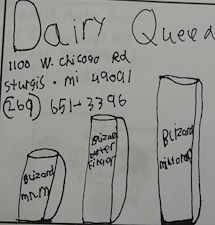 Dairy Queen
1100 W. Chicago Rd
Sturgis . mi 49091
(269) 651-3396
Blizard
mnm
Blizard
butter
finger
Blizard